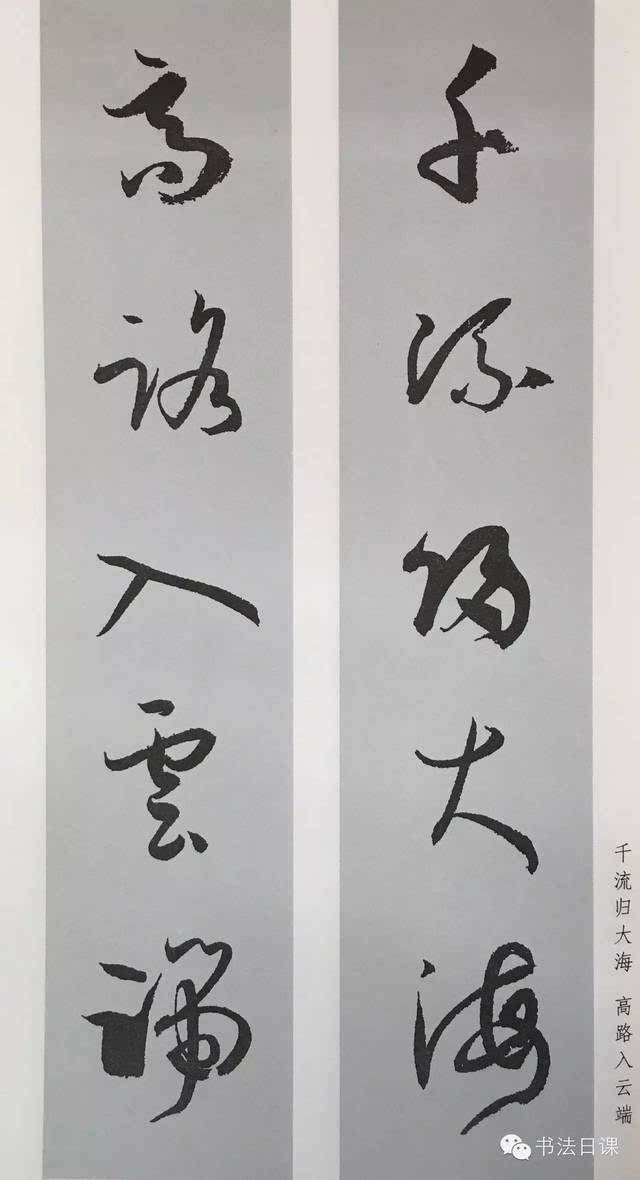 千流歸大海
高路入雲端
千流归大海 高路入云端
书法日课